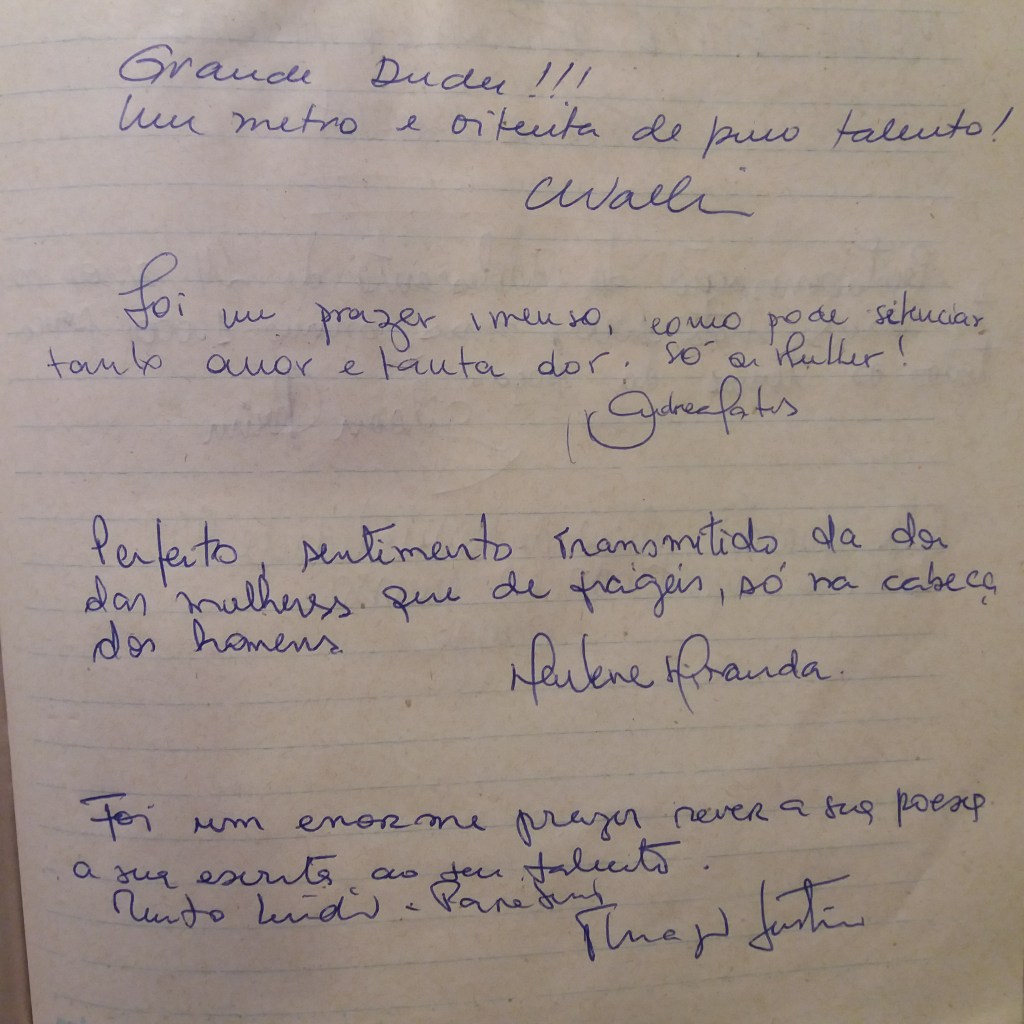 Grande Dudu!!!
Um metro e oitenta de puro talento!
Foi um prazer imenso, como pode silenciar
tanto amor e tanta dor. Só a Mulher!
Perfeito, sentimento transmitido da dor
das mulheres que de frágeis, só na cabeça
dos homens.
Miranda.
Foi um enorme prazer rever a sua poesia
a sua escrita ao seu talento.
Muito lindo. Parabéns
Thiago Justin